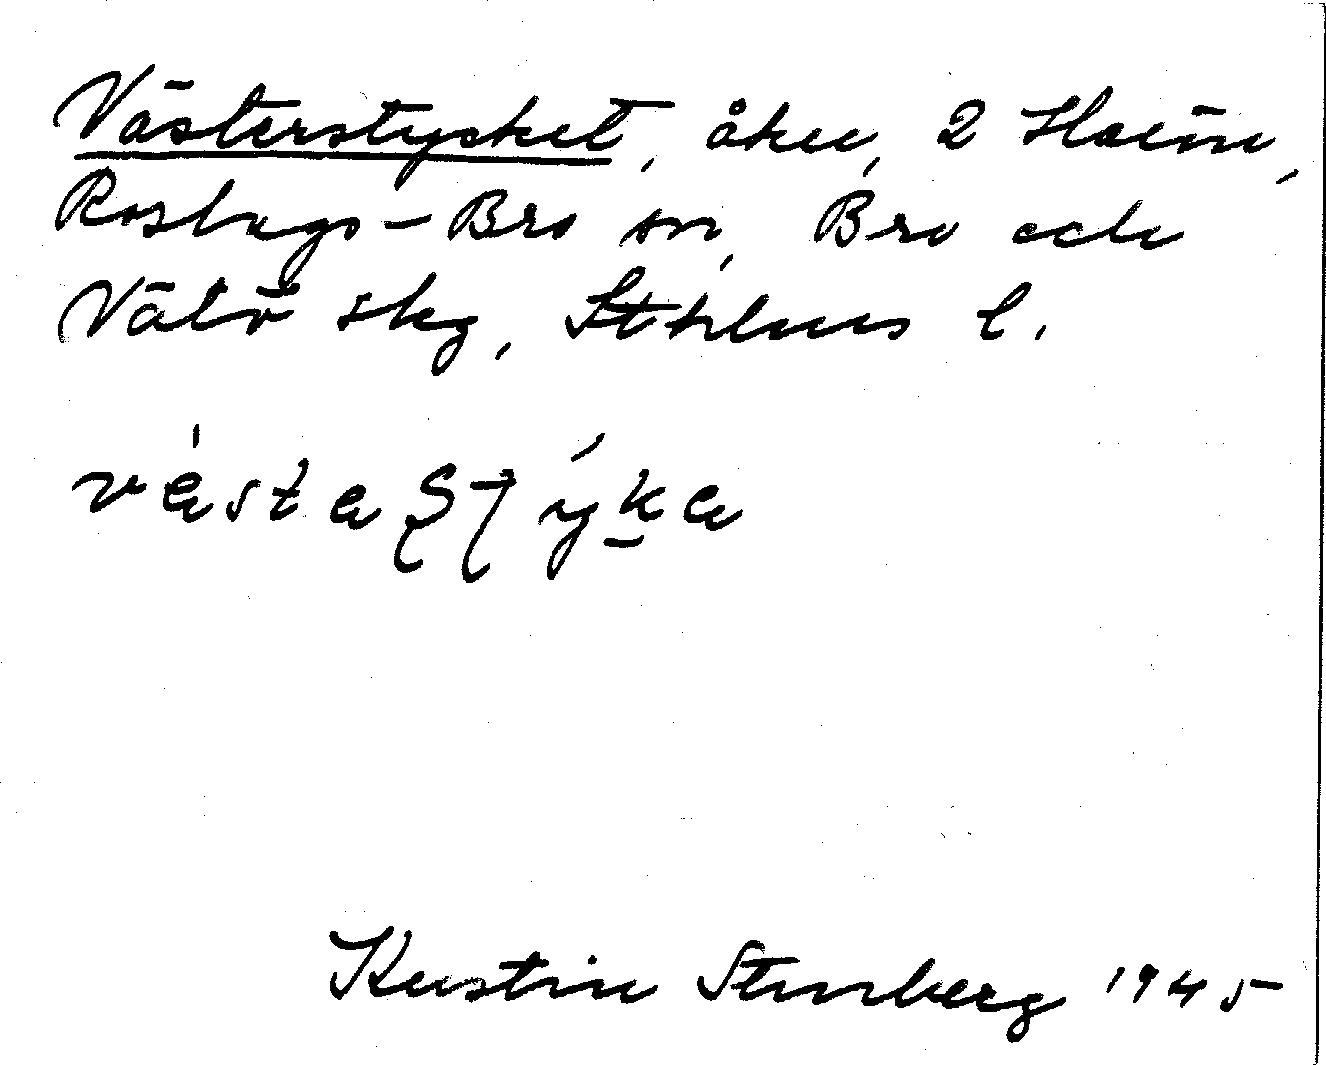 Västerstycket, åker, 2
Roslags-Bro sn, Bro och
Vätö skg, Sthlms l.
Kerstin Stenberg 1945